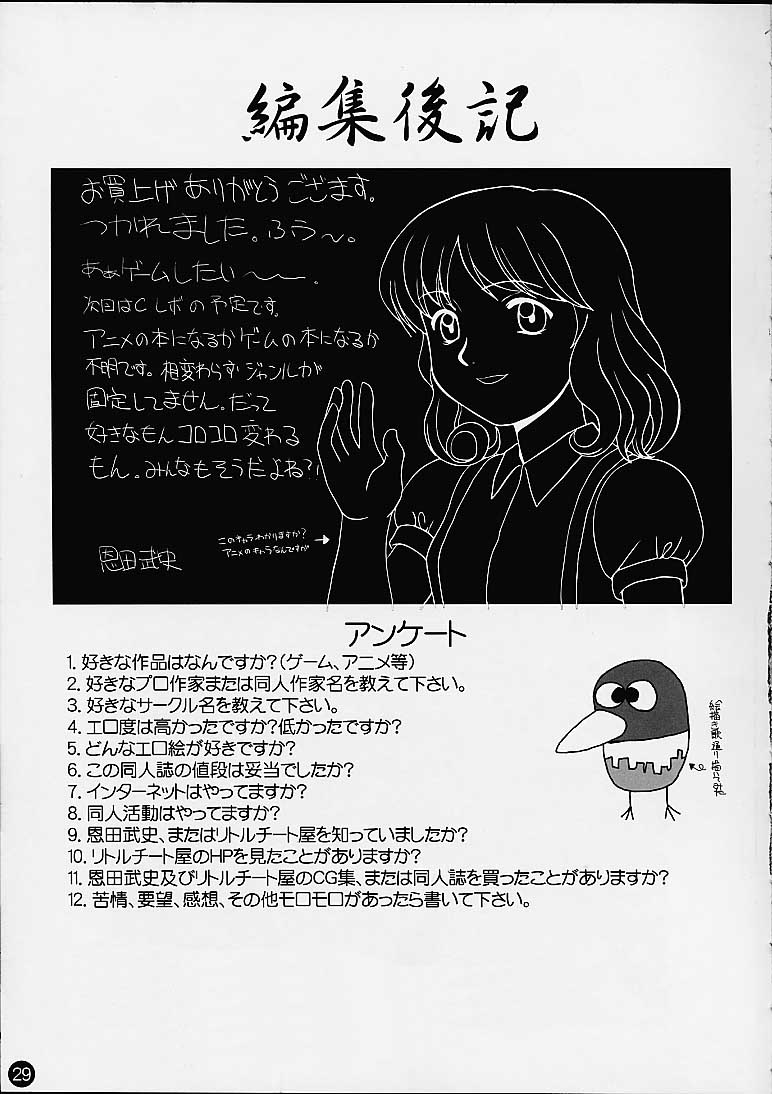 編集後記
お買上げありがとうございます。
つかれました。ふう～。
あぁゲームしたい～～。
次回はCレボの予定です。
アニメの本になるかゲームの本になるか
不明です。相変わらずジャンルが
固定してません。だって
好きなもんコロコロ変わる
もん。みんなもそうだよね?!
恩田武史
このキャラわかりますか?
アニメのキャラなんですが
アンケート
1. 好きな作品はなんですか?(ゲーム、アニメ等)
2. 好きなプロ作家または同人作家名を教えて下さい。
3. 好きなサークル名を教えて下さい。
4. エロ度は高かったですか?低かったですか?
5. どんなエロ絵が好きですか?
6. この同人誌の値段は妥当でしたか?
7. インターネットはやってますか?
8. 同人活動はやってますか?
9. 恩田武史、またはリトルチート屋を知っていましたか?
10. リトルチート屋のHPを見たことがありますか?
11. 恩田武史及びリトルチート屋のCG集、または同人誌を買ったことがありますか?
12. 苦情、要望、感想、その他モロモロがあったら書いて下さい。
絵描き歌通り描いてみた
29